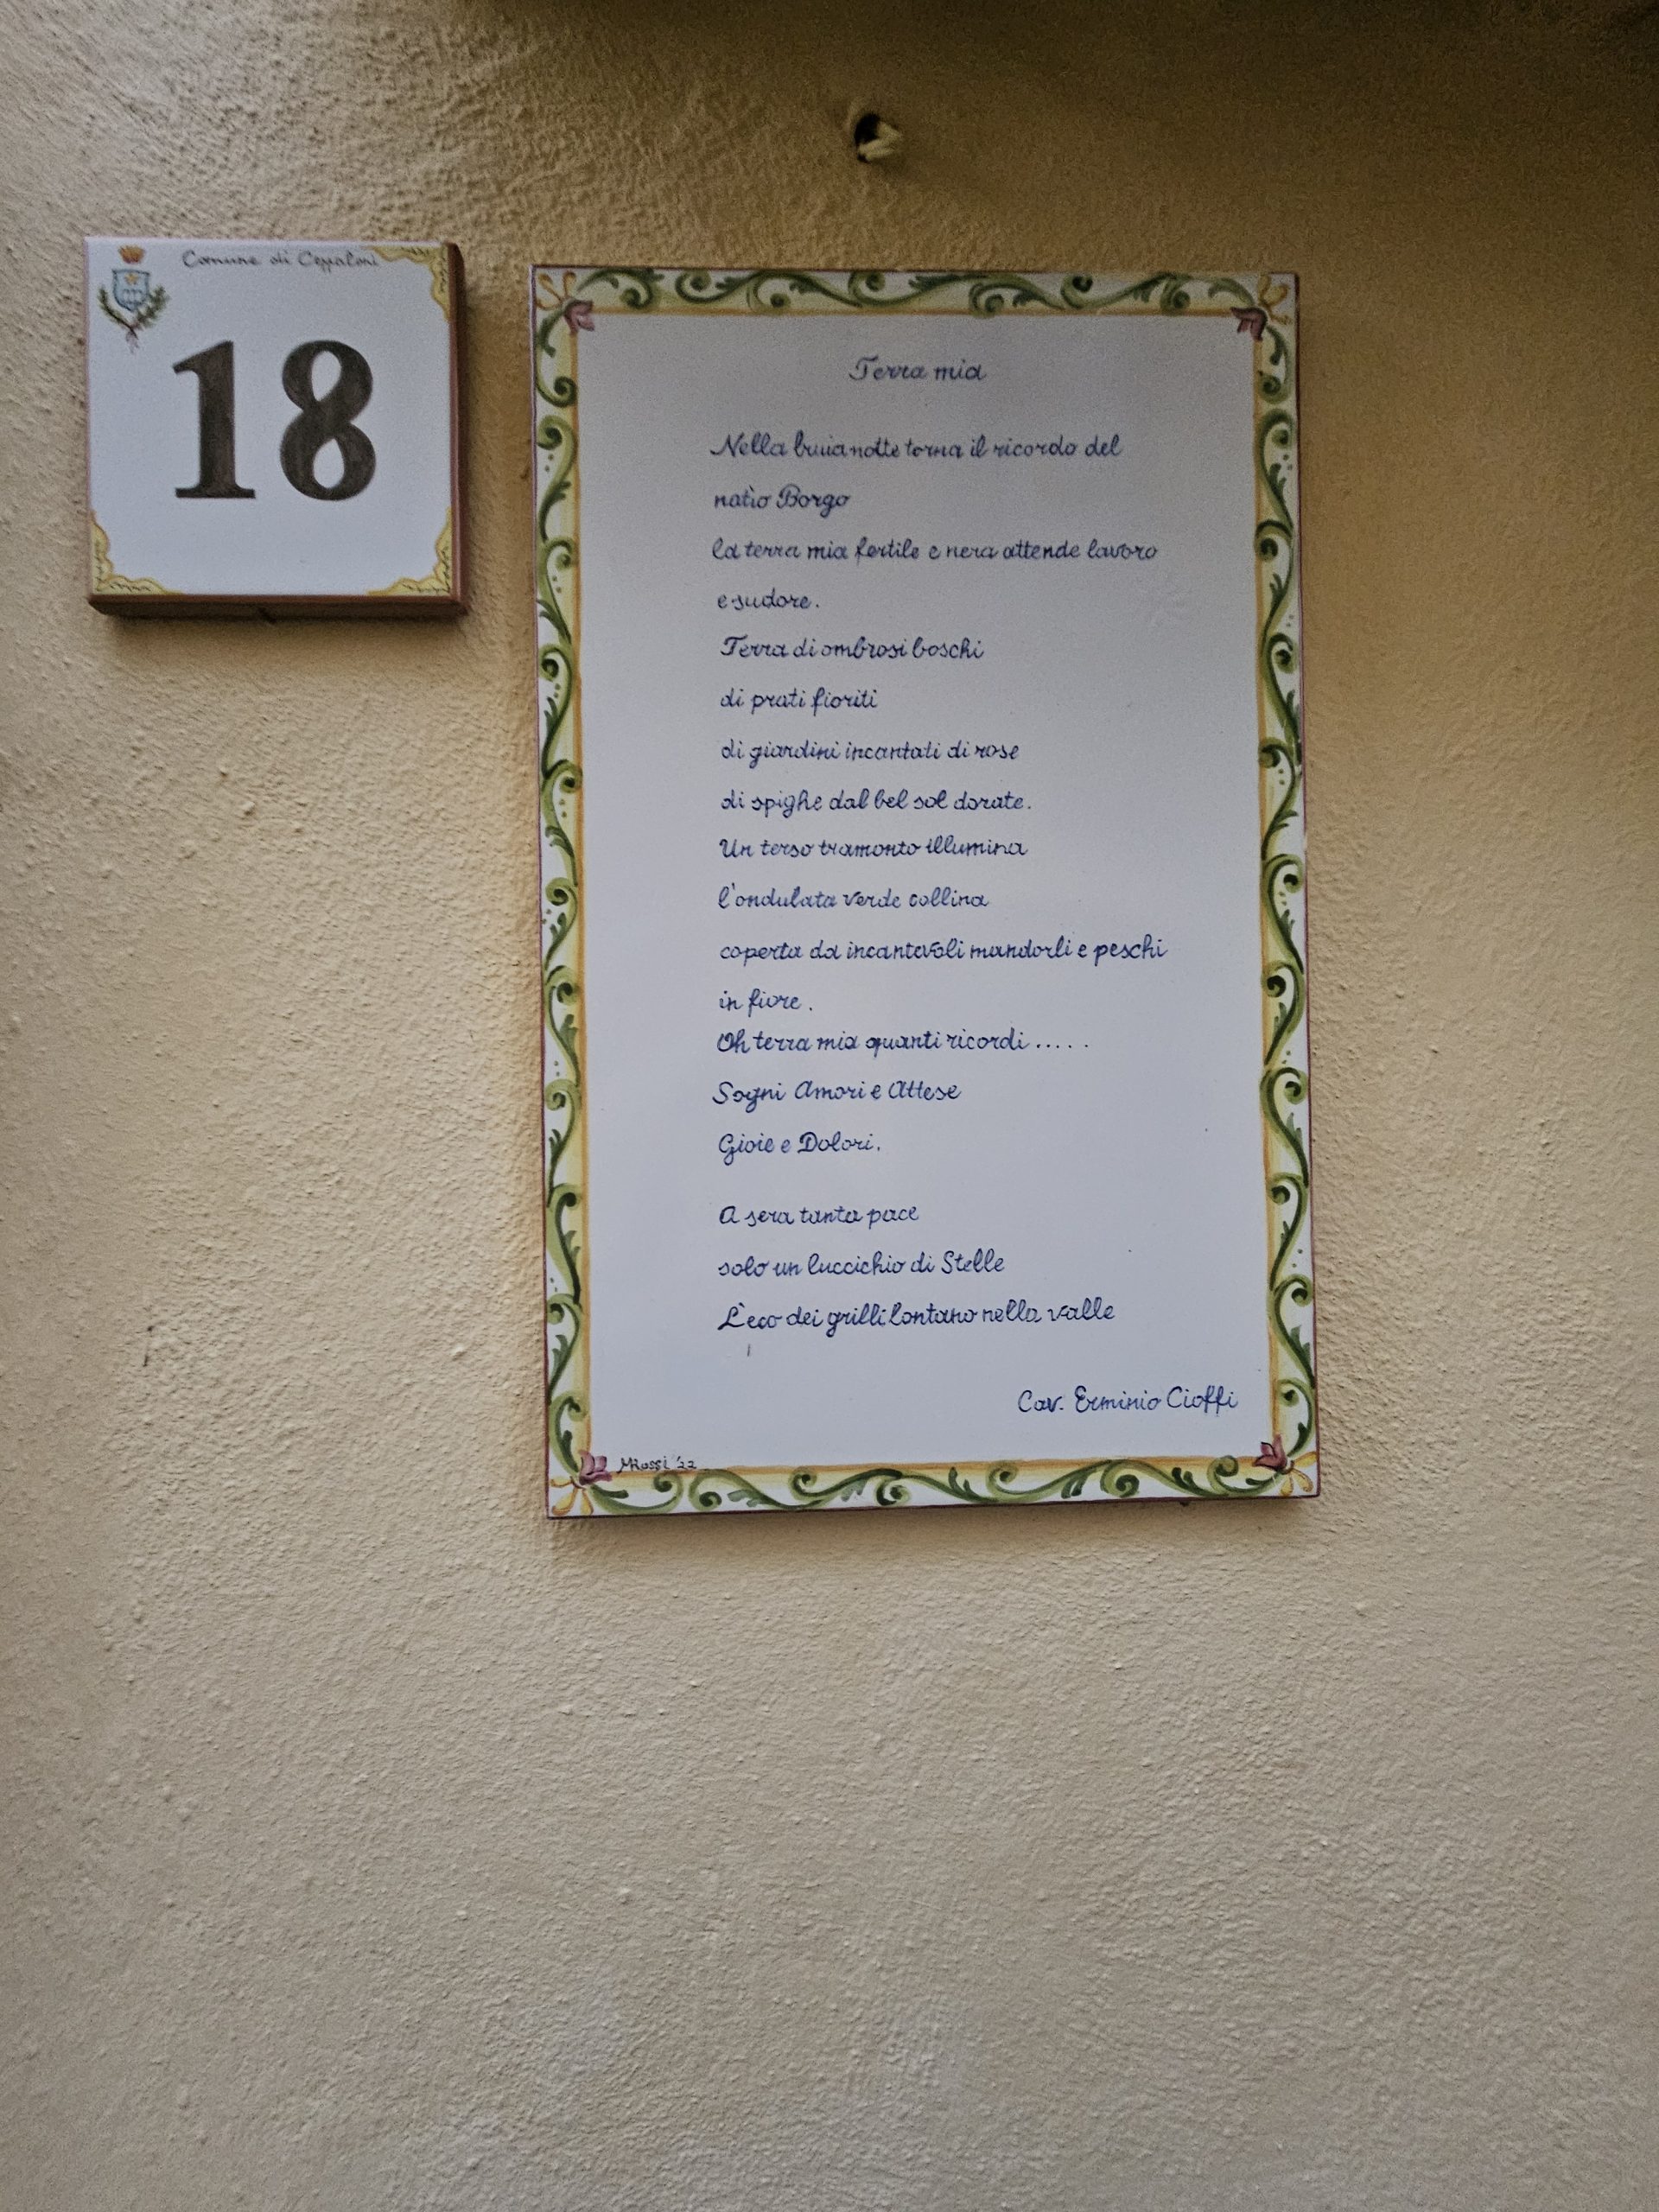 Comune di Ceppaloni
18
Terra mia
Nella buia notte torna il ricordo del
natìo Borgo
la terra mia fertile e nera attende lavoro
e sudore.
Terra di ombrosi boschi
di prati fioriti
di giardini incantati di rose
di spighe dal bel sol dorate.
Un terso tramonto illumina
l'ondulata verde collina
coperta da incantevoli mandorli e peschi
in fiore.
Oh terra mia quanti ricordi.....
Sogni Amori e Attese
Gioie e Dolori.
A sera tanta pace
solo un luccichio di Stelle
L'eco dei grilli lontano nella valle
Cav. Erminio Cioffi
MRossi '22